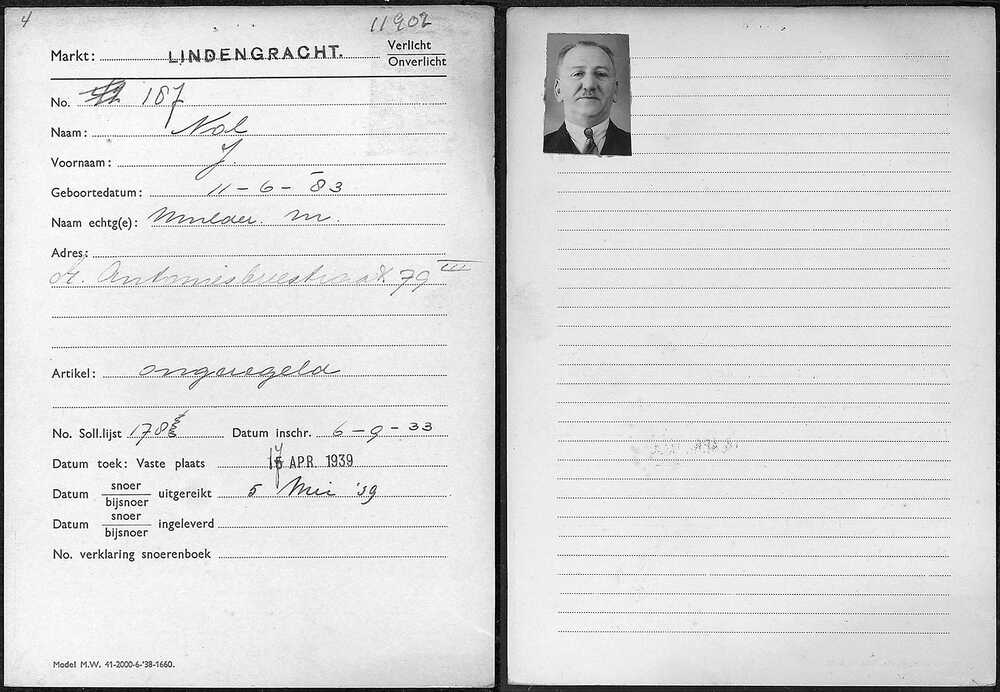 4
11902
Markt: LINDENGRACHT. Verlicht
Onverlicht
No. 187
Naam: Nol
Voornaam: J.
Geboortedatum: 11-6-83
Naam echtg(e): Mulder. M.
Adres:
St. Antoniesbreestraat 79 III
Artikel: ongeregeld
No. Soll.lijst 178 Datum inschr. 6-9-33
Datum toek: Vaste plaats 17 APR. 1939
Datum snoer
bijsnoer uitgereikt 5 Mei '39
Datum snoer
bijsnoer ingeleverd
No. verklaring snoerenboek
Model M.W. 41-2000-6-'38-1660.